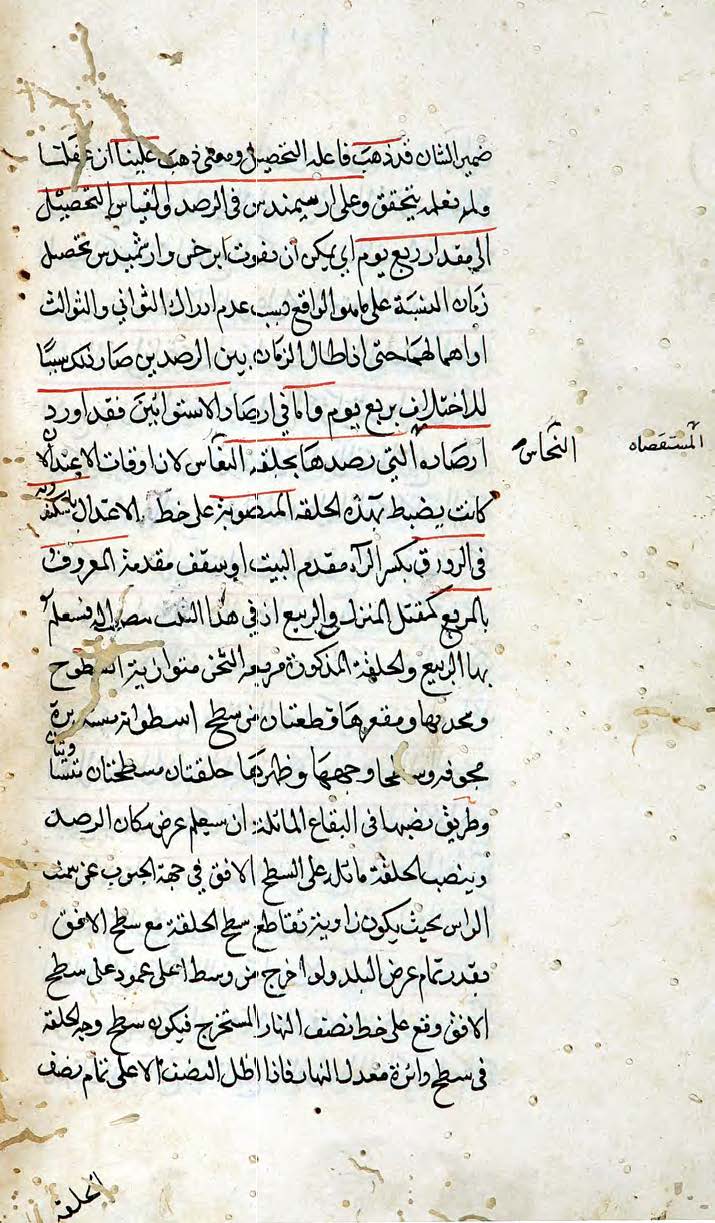 ضمير الشان قد ذهب فاعله التحصيل ومعنى ذهب علينا ان غفلنا
ولم نعلمه بتحقق وعلى ارسيمندس في الرصد والقياس التحصيل
الى مقدار ربع يوم اي يمكن ان يفوت ابرخس وارشميدس تحصيل
زمان السنة على ما هو الواقع بسبب عدم ادراك الثواني والثوالث
او اهمالهما حتى اذا طال الزمان بين الرصدين صار ذلك سببا
للاختلاف بربع يوم واما في ارصاد الاستوائين فقد اورد
ارصاده التي رصدها بحلقة النحاس لان اوقات الاعتدالا
كانت يضبط بهذه الحلقة المنصوبة على خط الاعتدال
في الرواق بكسر الراء مقدم البيت او سقف مقدمة المعروف
بالمربع كمقتل المنزل والربيع اذ في هذا
بها الربيع والحلقة المذكورة مربعة الثخن متوازية السطوح
ومحدبها ومقعرها قطعتان من سطح اسطوانة مستديرة
مجوفة وسطحا وجهها وظهرها حلقتان مسطحتان متسا
وطريق نصبها في البقاع المائلة ان يعلم عرض مكان الرصد
وينصب الحلقة مائلة على السطح الافق في جهة الجنوب عن سمت
الراس بحيث يكون زاوية تقاطع سطح الحلقة مع سطح الافق
بقدر تمام عرض البلد ولو اخرج من وسط اعلى عمود على سطح
الافق وقع على خط نصف النهار المستخرج فيكون سطح وجه الحلقة
في سطح دائرة معدل النهار فاذا اظل النصف الاعلى تمام نصف
الحلقة
النحاس
المستقصاه
ويتا